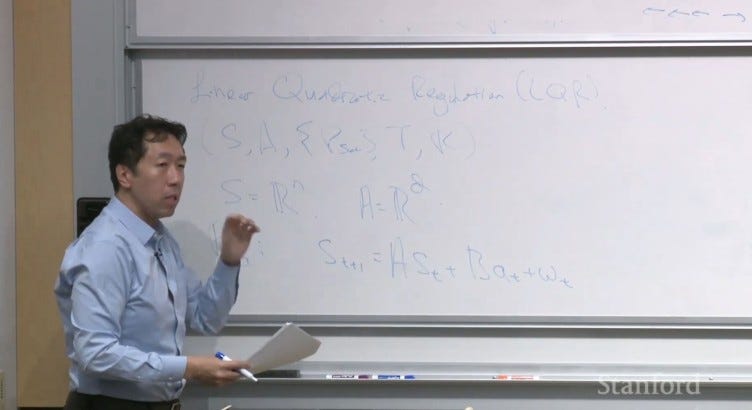 Linear Quadratic Regulation (LQR)
(S, A, {P_sa}, T, R)
S = ℝ^n. A = ℝ^d.
S_{t+1} = A S_t + B a_t + w_t
Stanford